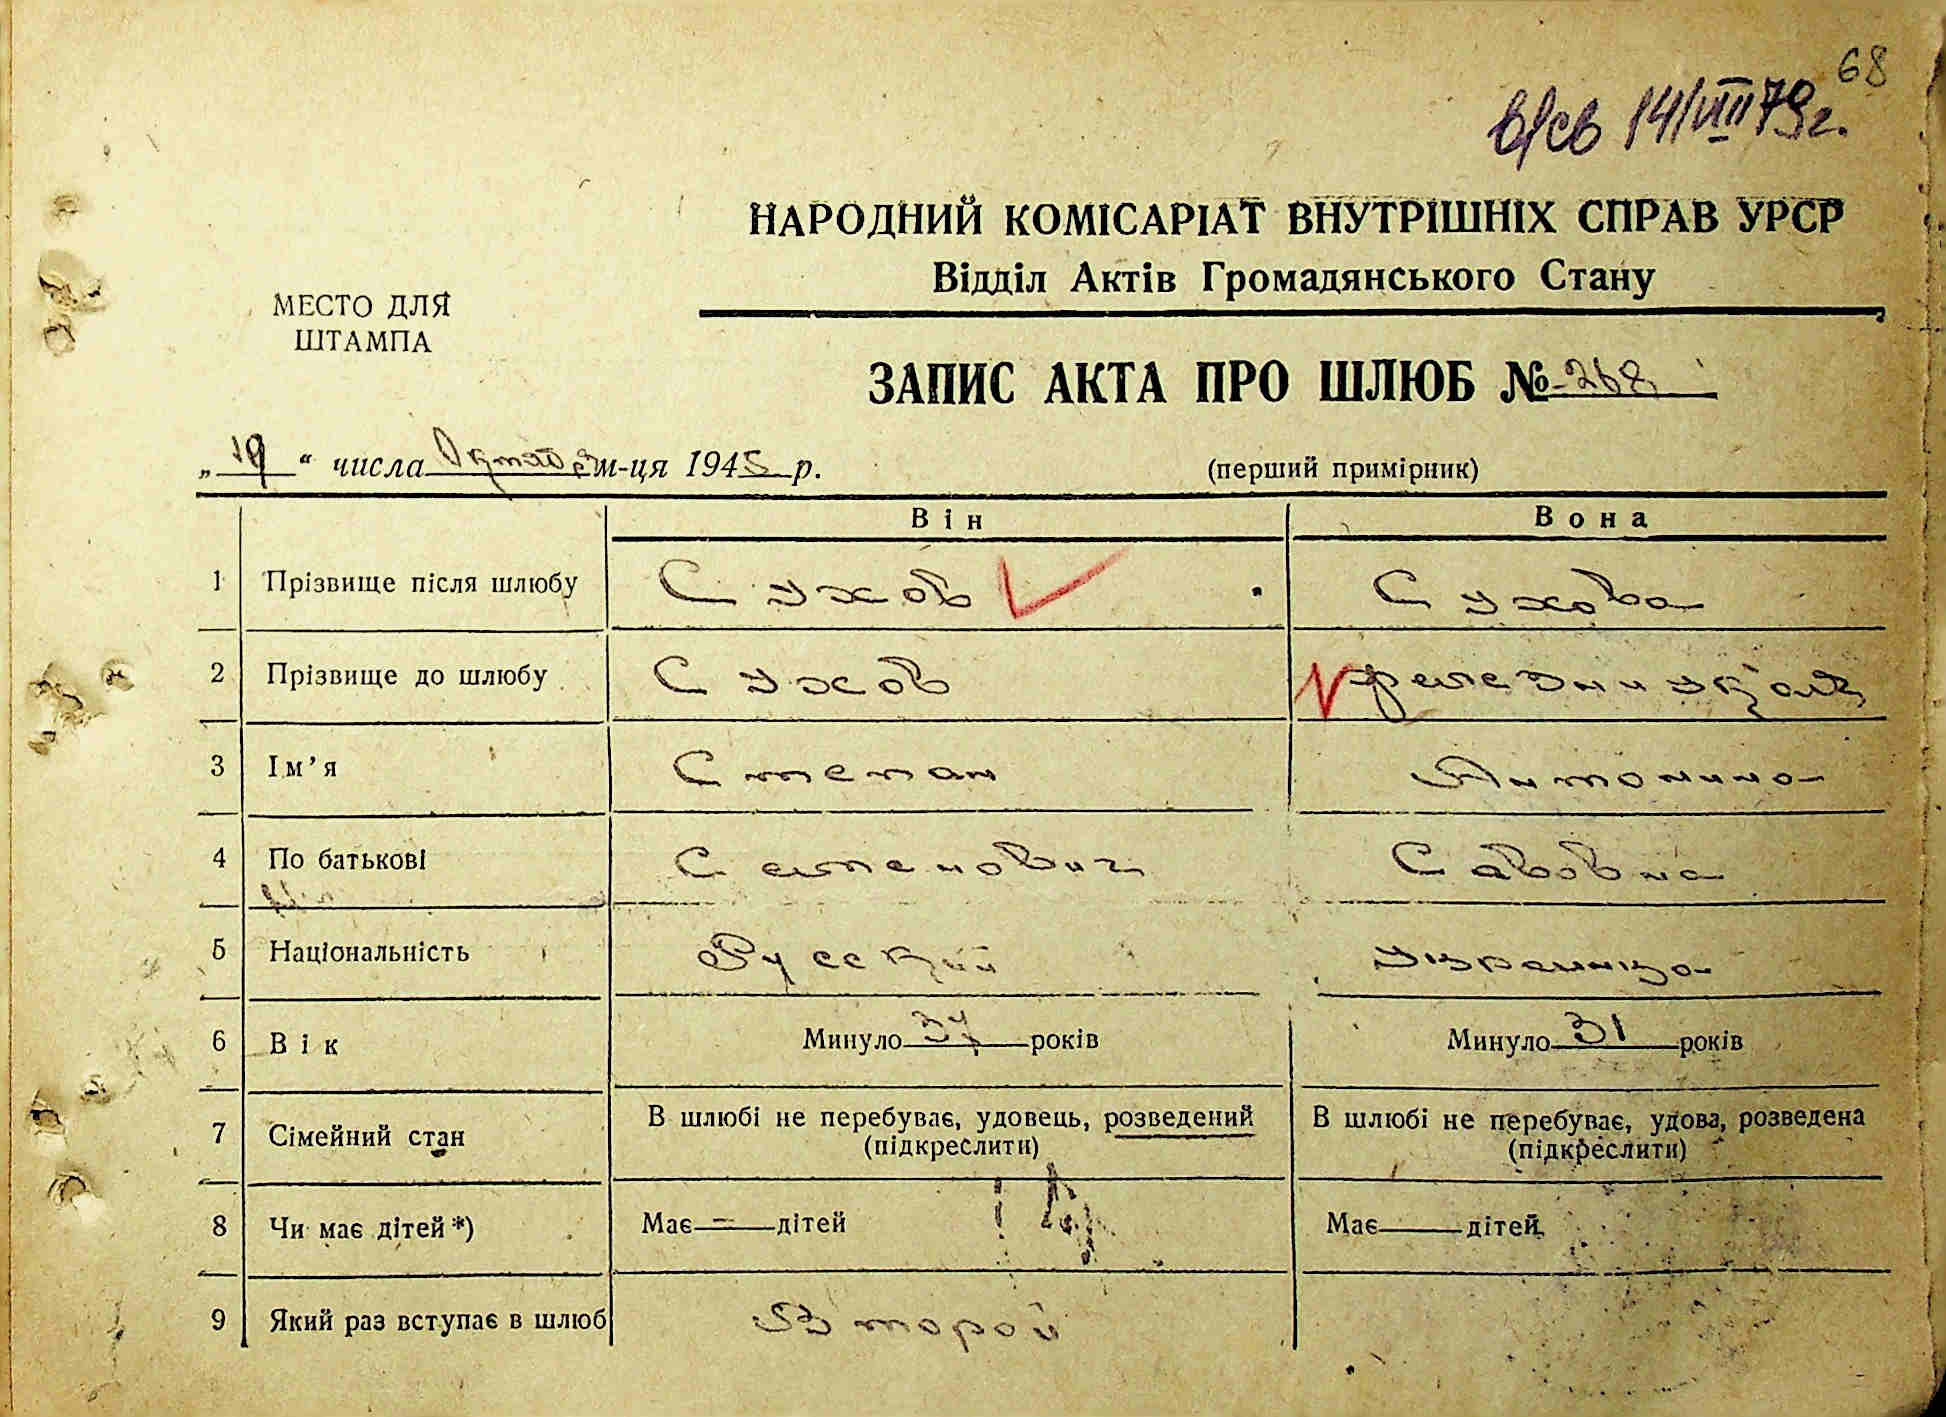 68
в/св 14/VIII 79г.
НАРОДНИЙ КОМІСАРІАТ ВНУТРІШНІХ СПРАВ УРСР
Відділ Актів Громадянського Стану
МЕСТО ДЛЯ
ШТАМПА
ЗАПИС АКТА ПРО ШЛЮБ № 268
„19“ числа Октября м-ця 1945 р. (перший примірник)
Він Вона
1 Прізвище після шлюбу Сухов Сухова
2 Прізвище до шлюбу Сухов
3 Ім'я Степан Антонина
4 По батькові Семенович Савовна
5 Національність Русский Украинка
6 Вік Минуло 37 років Минуло 31 років
7 Сімейний стан В шлюбі не перебуває, удовець, розведений В шлюбі не перебуває, удова, розведена
(підкреслити) (підкреслити)
8 Чи має дітей*) Має — дітей Має дітей
9 Який раз вступає в шлюб Второй